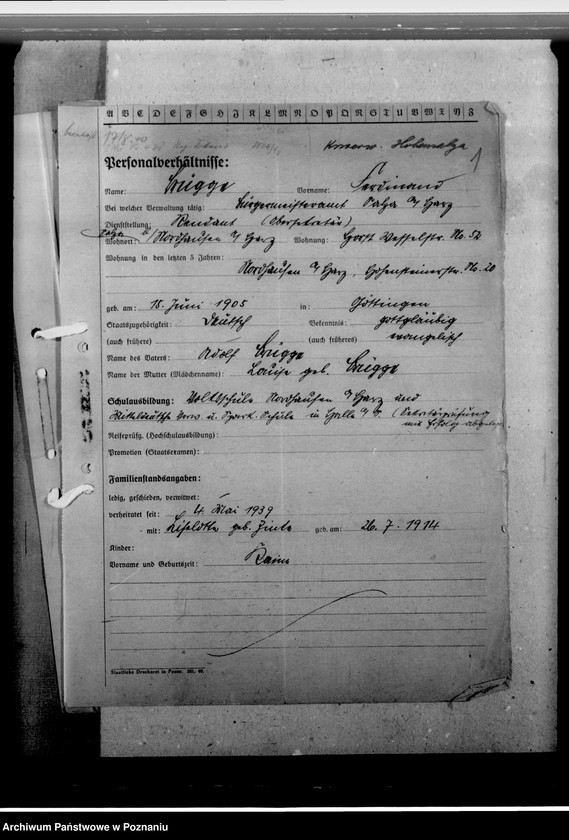 A B C D E F G H J K L M N O P Q R S T U V W X Y Z
17/8.40
Personalverhältnisse:
Name: Brügge Vorname: Ferdinand
Bei welcher Verwaltung tätig: Bürgermeisteramt Salza a/ Harz
Dienststellung: Rendant (Obersekretär)
Salza
Wohnort: Nordhausen a/ Harz Wohnung: Horst Wesselstr. No. 52
Wohnung in den letzten 5 Jahren:
Nordhausen a/ Harz, Hohensteinerstr. No. 20
geb. am: 15. Juni 1905 in: Göttingen
Staatszugehörigkeit: Deutsch Bekenntnis: gottgläubig
(auch frühere) (auch früheres) evangelisch
Name des Vaters: Adolf Brügge
Name der Mutter (Mädchenname): Louise geb. Brügge
Schulausbildung: Volksschule Nordhausen a/ Harz und
Mitteldeutsche Verw. u. Spark. Schule in Halle a/ S. (Sekretärprüfung
mit Erfolg abgelegt
Reifeprüfg. (Hochschulausbildung)
Promotion (Staatsexamen):
Familienstandsangaben:
ledig, geschieden, verwitwet:
verheiratet seit: 4. Mai 1939
mit: Liselotte geb. geb. am: 26. 7. 1914
Kinder:
Vorname und Geburtszeit: Keine
Staatliche Druckerei in Posen.
Archiwum Państwowe w Poznaniu